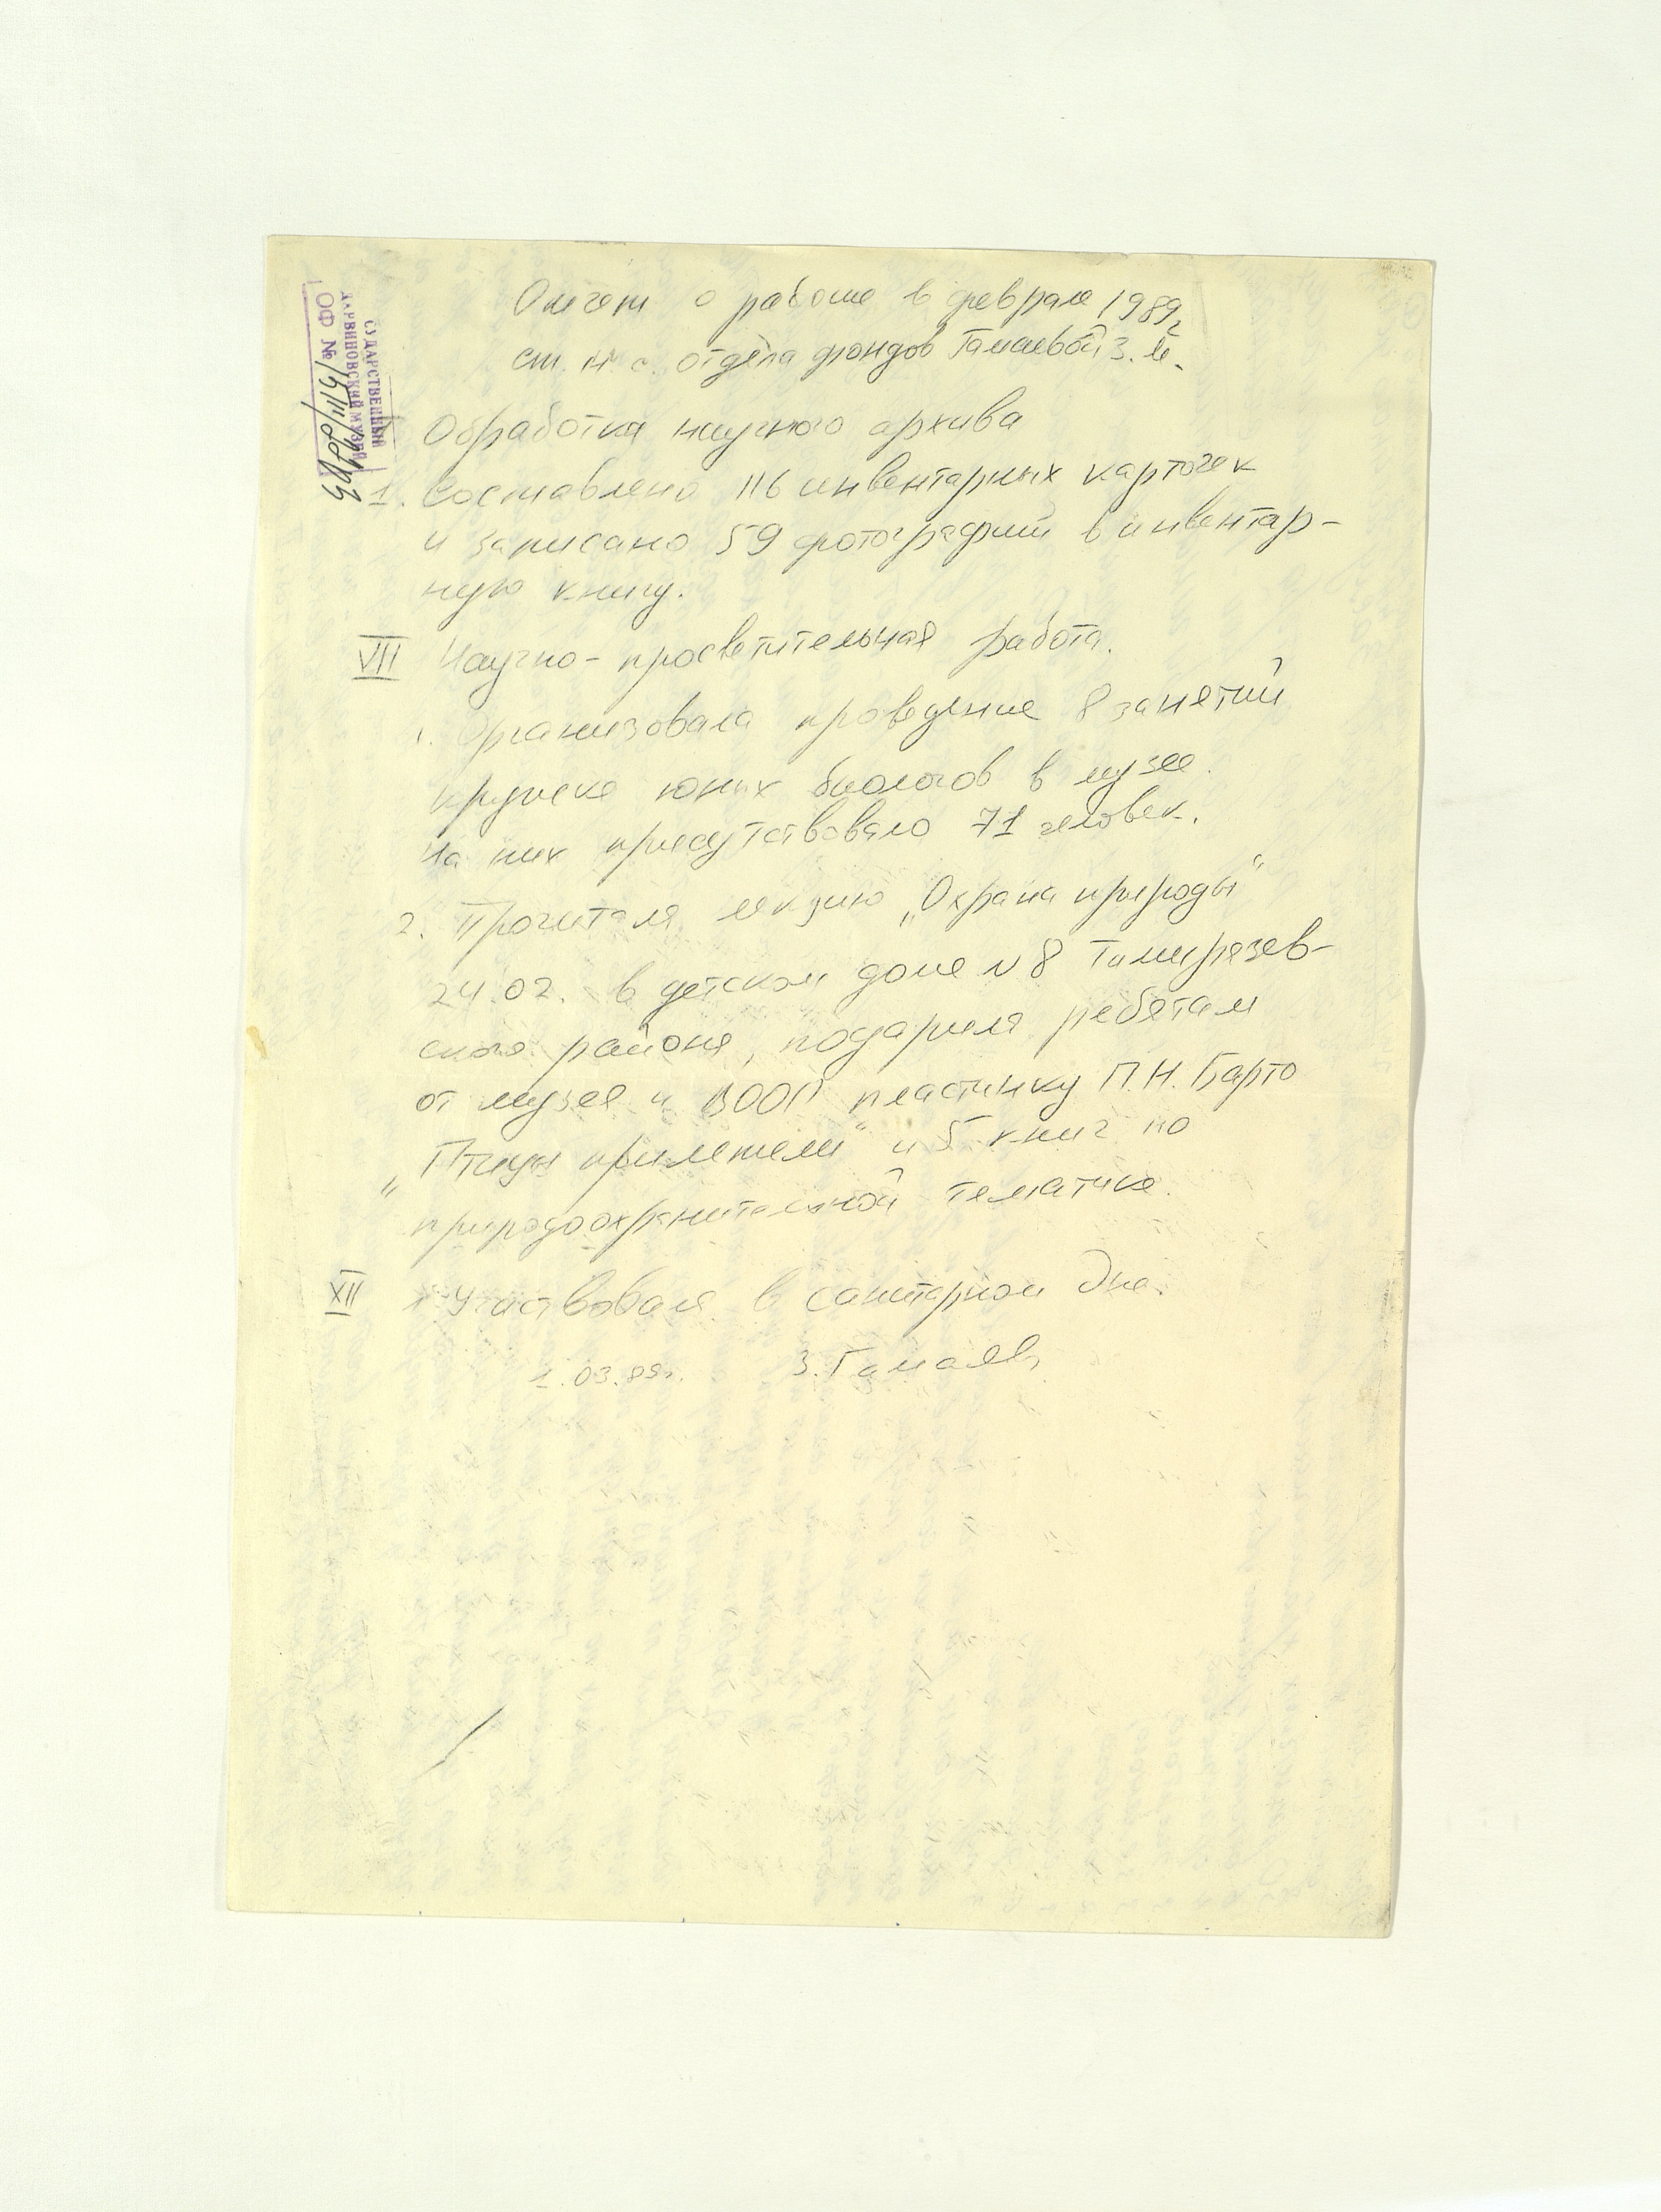 Отчет о работе в феврале 1989г
ст. н. с. отдела фондов Гамаевой З. М.
ГОСУДАРСТВЕННЫЙ
ДАРВИНОВСКИЙ МУЗЕЙ
ОФ №
Обработка научного архива
1. Составлено 116 инвентарных карточек
и записано 59 фотографий в инвентар-
ную книгу.
VII Научно-просветительная работа.
1. Организовала проведение 8 занятий
кружка юных биологов в музее.
На них присутствовало 71 человек.
2. Прочитала лекцию „Охрана природы"
24.02. в детском доме N 8 Тимирязев-
ского района, подарила ребятам
от музея и ВООП пластинку П.Н. Барто
„Птицы прилетели" и 5 книг по
природоохранительной тематике.
XII 1. Участвовала в санитарном дне.
1.03.89г. З. Гамаев